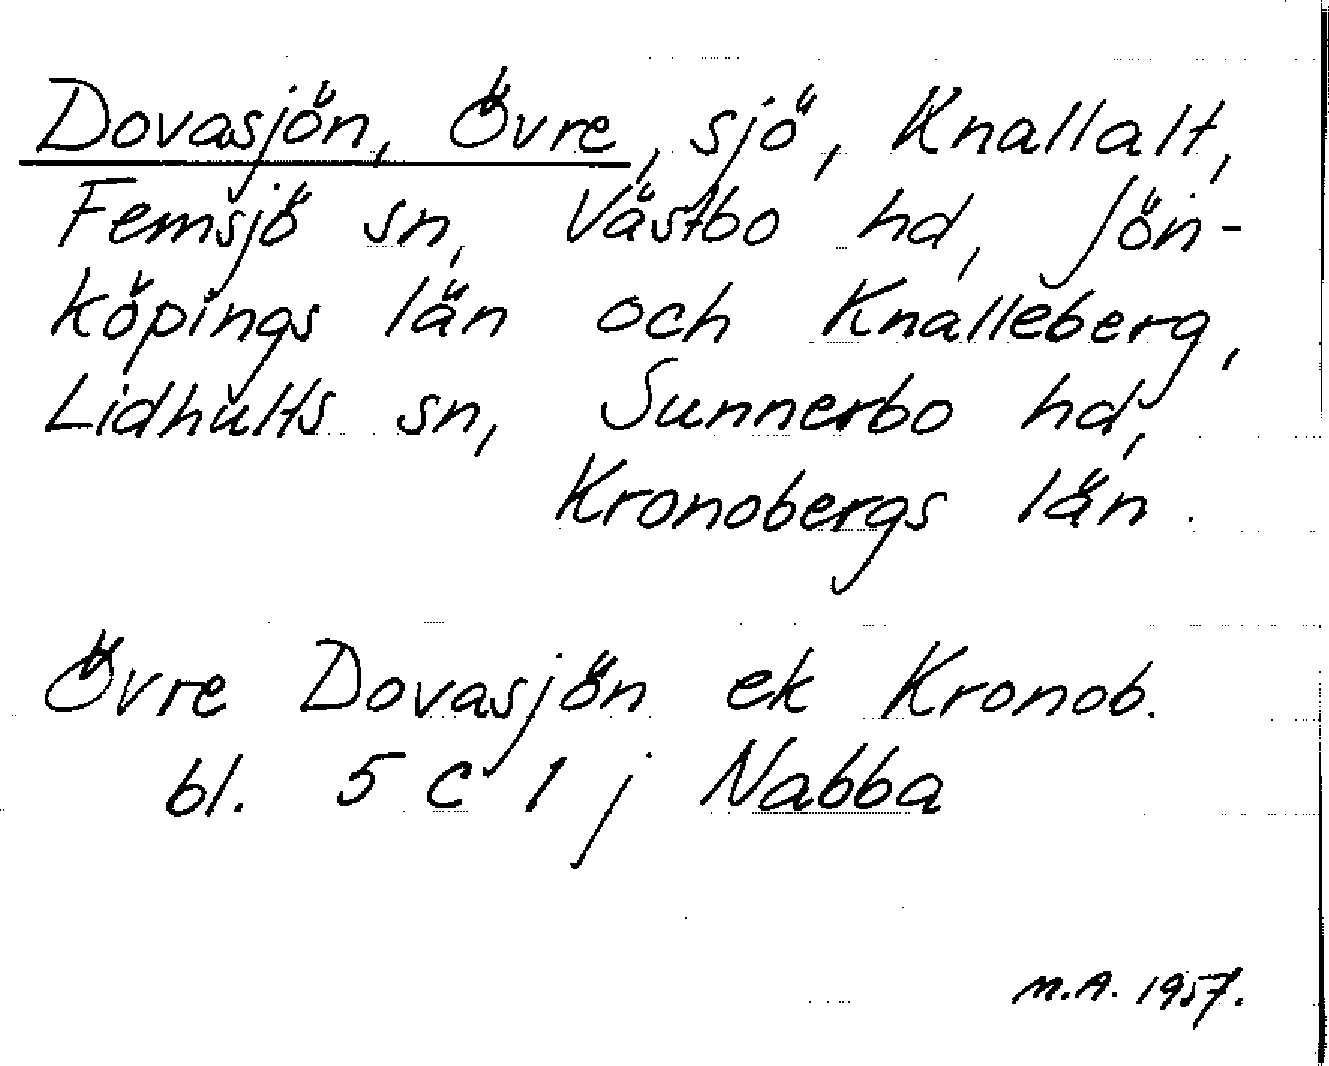 Dovasjön, Övre, sjö, Knallalt,
Femsjö sn, Västbo hd, Jön-
köpings län och Knalleberg,
Lidhults sn, Sunnerbo hd,
Kronobergs län.
Övre Dovasjön ek Kronob.
bl. 5 C 1 j Nabba
M.A. 1957.